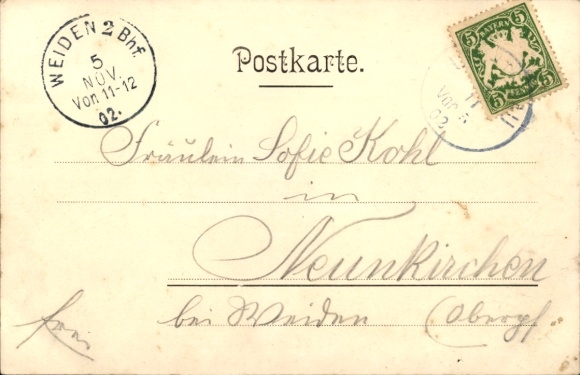 WEIDEN 2 Bhf.
5
NOV.
Von 11-12
02.
Postkarte.
5 BAYERN 5
5 PFENNIG 5
11
Vor. 5
02
Fräulein Sofie Kohl
in
Neunkirchen
bei Weiden (Oberpf.
frei